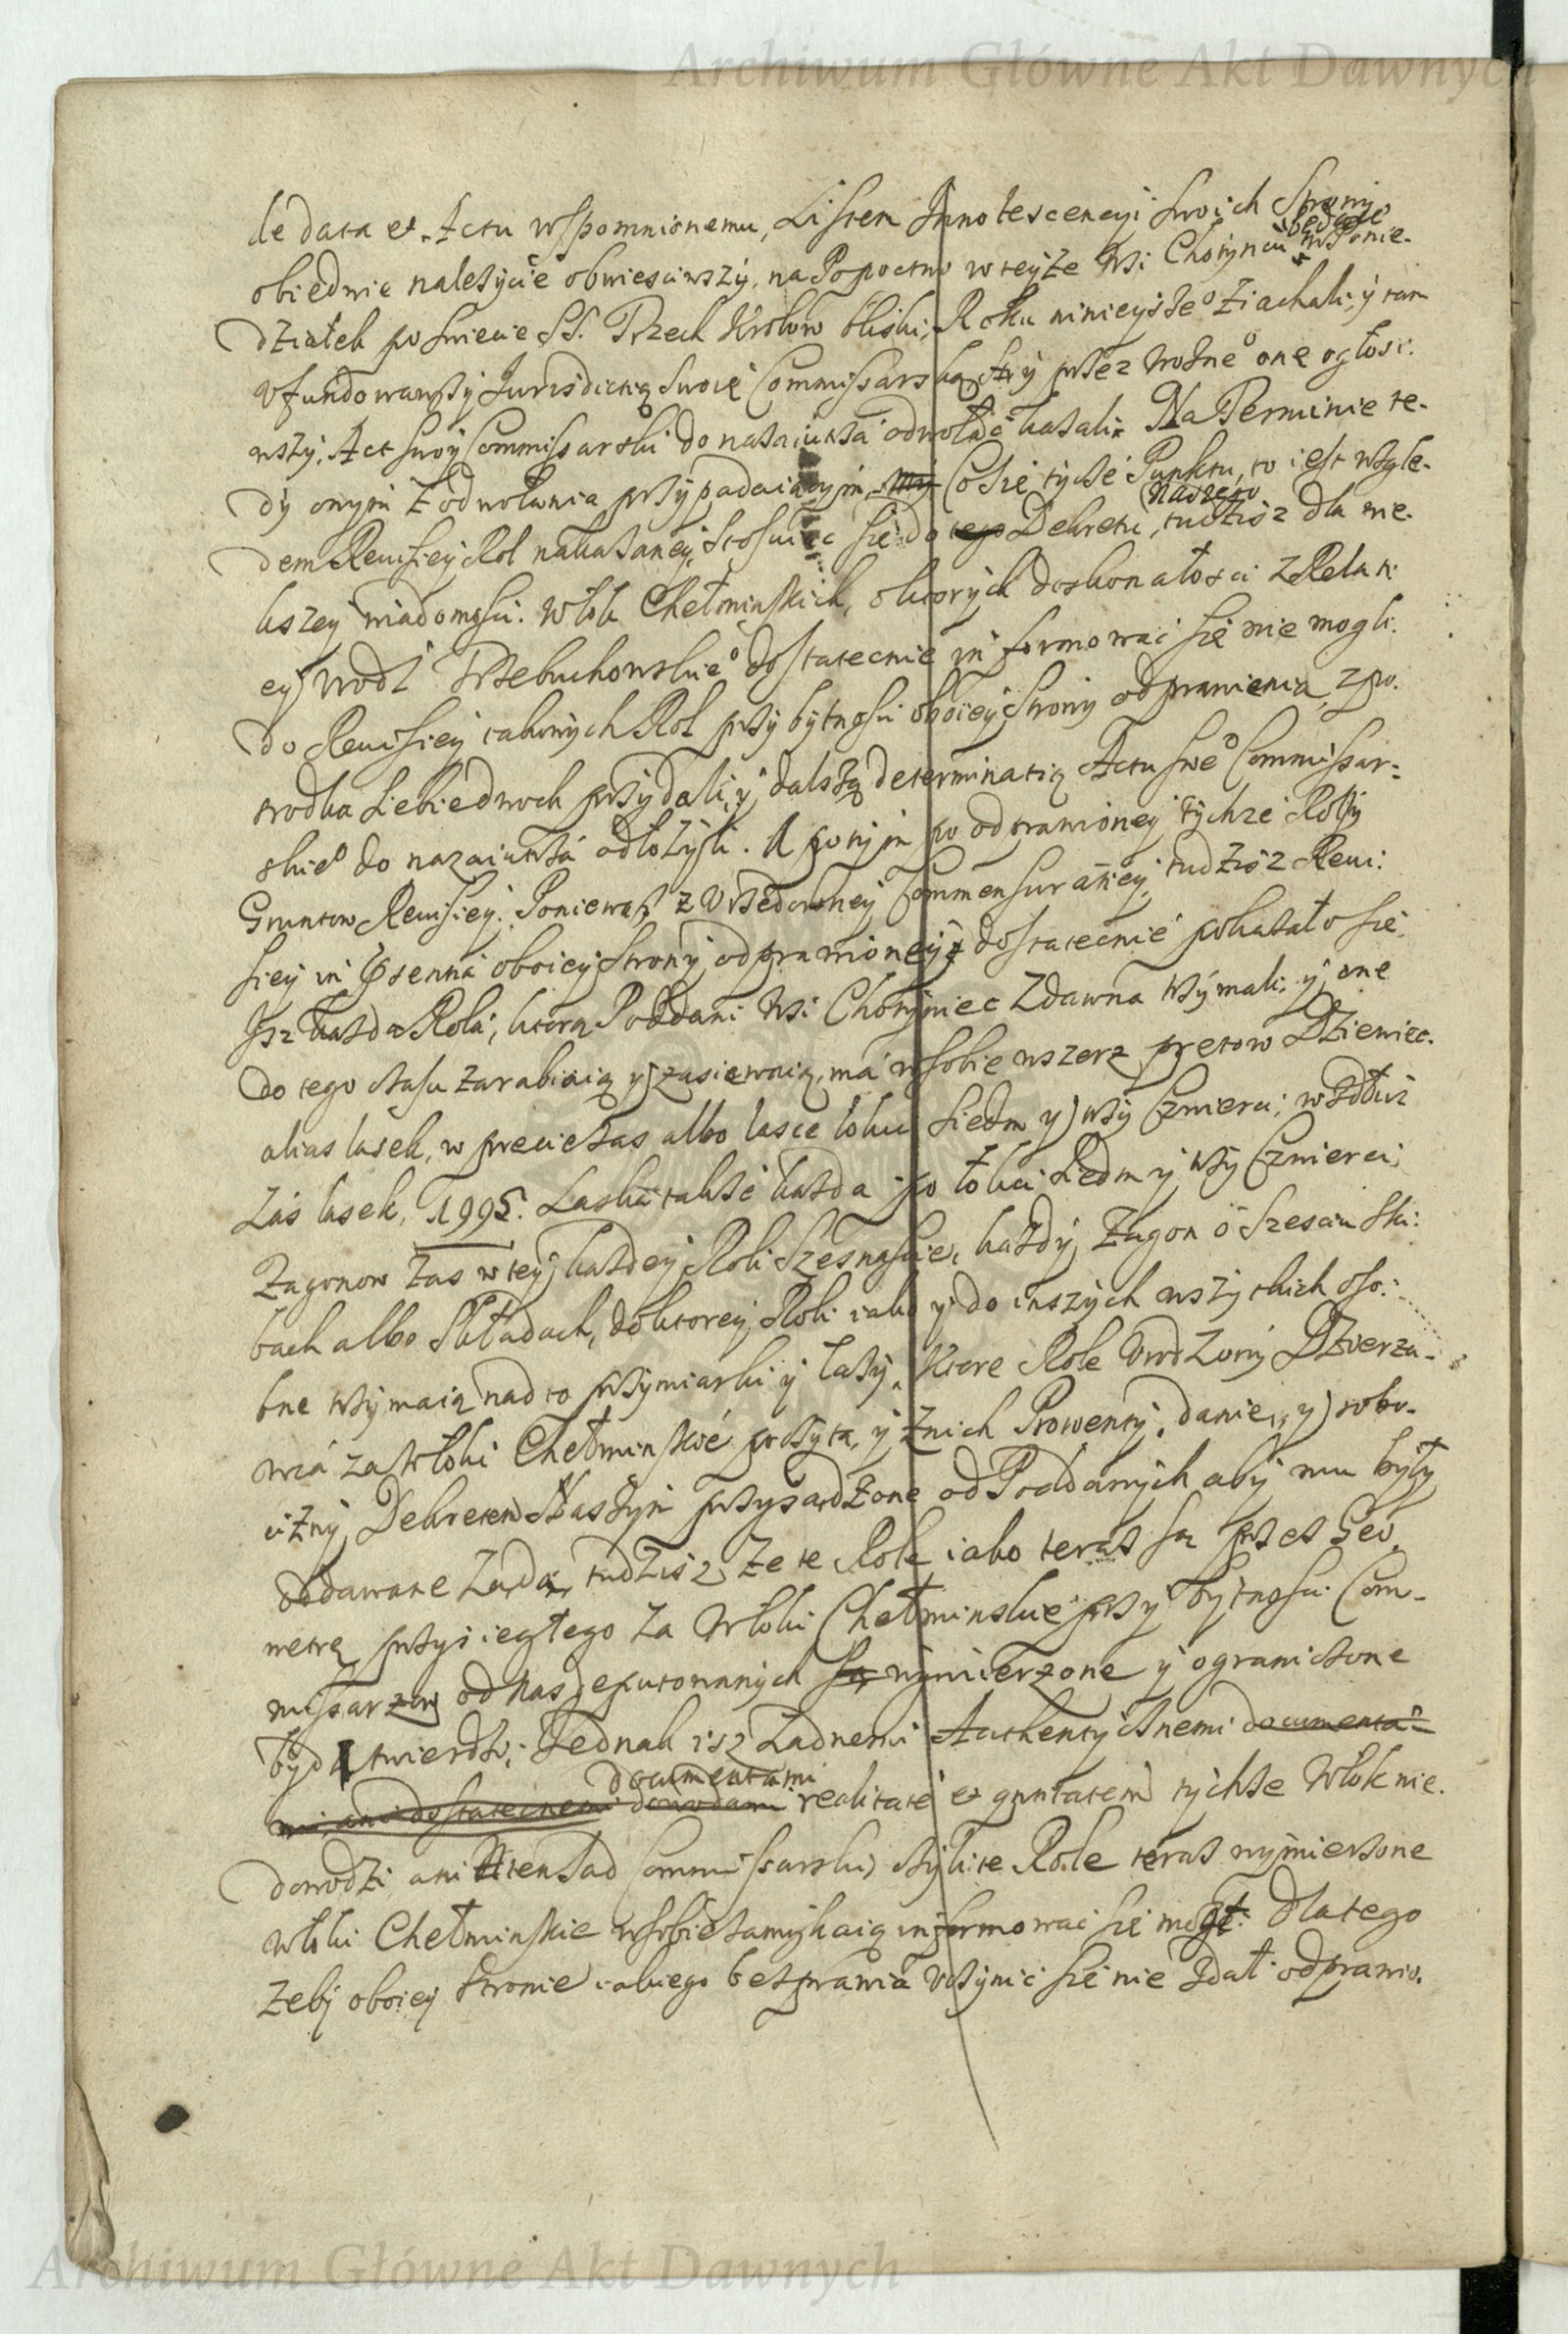 Archiwum Główne Akt Dawnych
de data et Actu wspomnionemu, Listem Innotescencyi swoich Strony
będące
obiedwie należycie obwiesciwszy, na Popoctwo w teyże Wsi Chotyncu w Ponie-
działek po Swiecie SS. Trzech Krolow bliski, Roku ninieysze° ziachali, y tam
Vfundowawszy Jurisdictią swoię Commissarską y przez Woźne° onę ogłosi-
wszy, Act swoy Commissarski do nazaiutrz odwołać kazali. Na Terminie te-
dy onym z odwołania przypadaiącym, Co się tycze Punktu, to iest wzglę-
naszego
dem Rewisiey Rol nakazaney, stosuiąc się do tego Dekretu, tudzisz dla wie-
kszey wiadomości Włok Chełminskich, o ktorych doskonałosci z Relati-
ey Vrodz Trzebuchowskie° dostatecnie informować się nie mogli,
do Rewisiey takowych Rol przy bytnosci oboiey Strony odprawienia, z po-
srodka siebie dwoch przydali, y dalszą determinatią Actu swe° Commissar-
skie° do nazaiutrz odłożyli. A potym po odprawioney tychże Roly
Gruntow Rewisiey. Ponieważ z Vrzędowney Commensuratiey, tudzisz Rewi-
siey in Praesentia oboiey Strony odprawioney dostatecnie pokazało się,
Isz każda Rola, ktorą Poddani Wsi Chotyniec zdawna trzymali, y one
do tego czasu zarabiaią y zasiewaią, ma w sobie wszerz prętow Dziewięc
alias lasek, w pręcie zas albo lasce łokci siedm y trzy Czwierci, wzdłuż
zas lasek, 1995. Laska także każda po łokci siedm y trzy Czwierci,
Zagonow zas w tey każdey Roli szesnascie, każdy Zagon o szesciu ski-
bach albo składach, do ktorey Roli iako y do inszych wszytkich oso-
bne trzymaią nadto przymiarki y łazy. Ktore Role Vrodzony Dzierza-
wca za Włoki Chełminskie poczyta, y z nich Prowenty, danie, y robo-
cizny Dekretem Naszym przysądzone od Poddanych aby mu były
oddawane żąda, tudzisz że te Role iako teraz są przez Geo-
metrę przysięgłego za Włoki Chełminskie przy bytnosci Com-
missarzow od nas deputowanych są wymierzone y ograniczone
bydź twierdzi; Jednak isz żadnemi Authentycznemi documenta-
documentami
mi, ani dostatecznemi dowodami realitatem et quantitatem tychże Włok nie
dowodzi, ani ten Sąd Commissarski, czyli te Role teraz wymierzone
włoki Chełminskie w sobie zamykaią informować się mogł. Dlatego
żeby oboiey stronie iakiego bezprawia vczynić się nie zdał odprawio-
Archiwum Główne Akt Dawnych